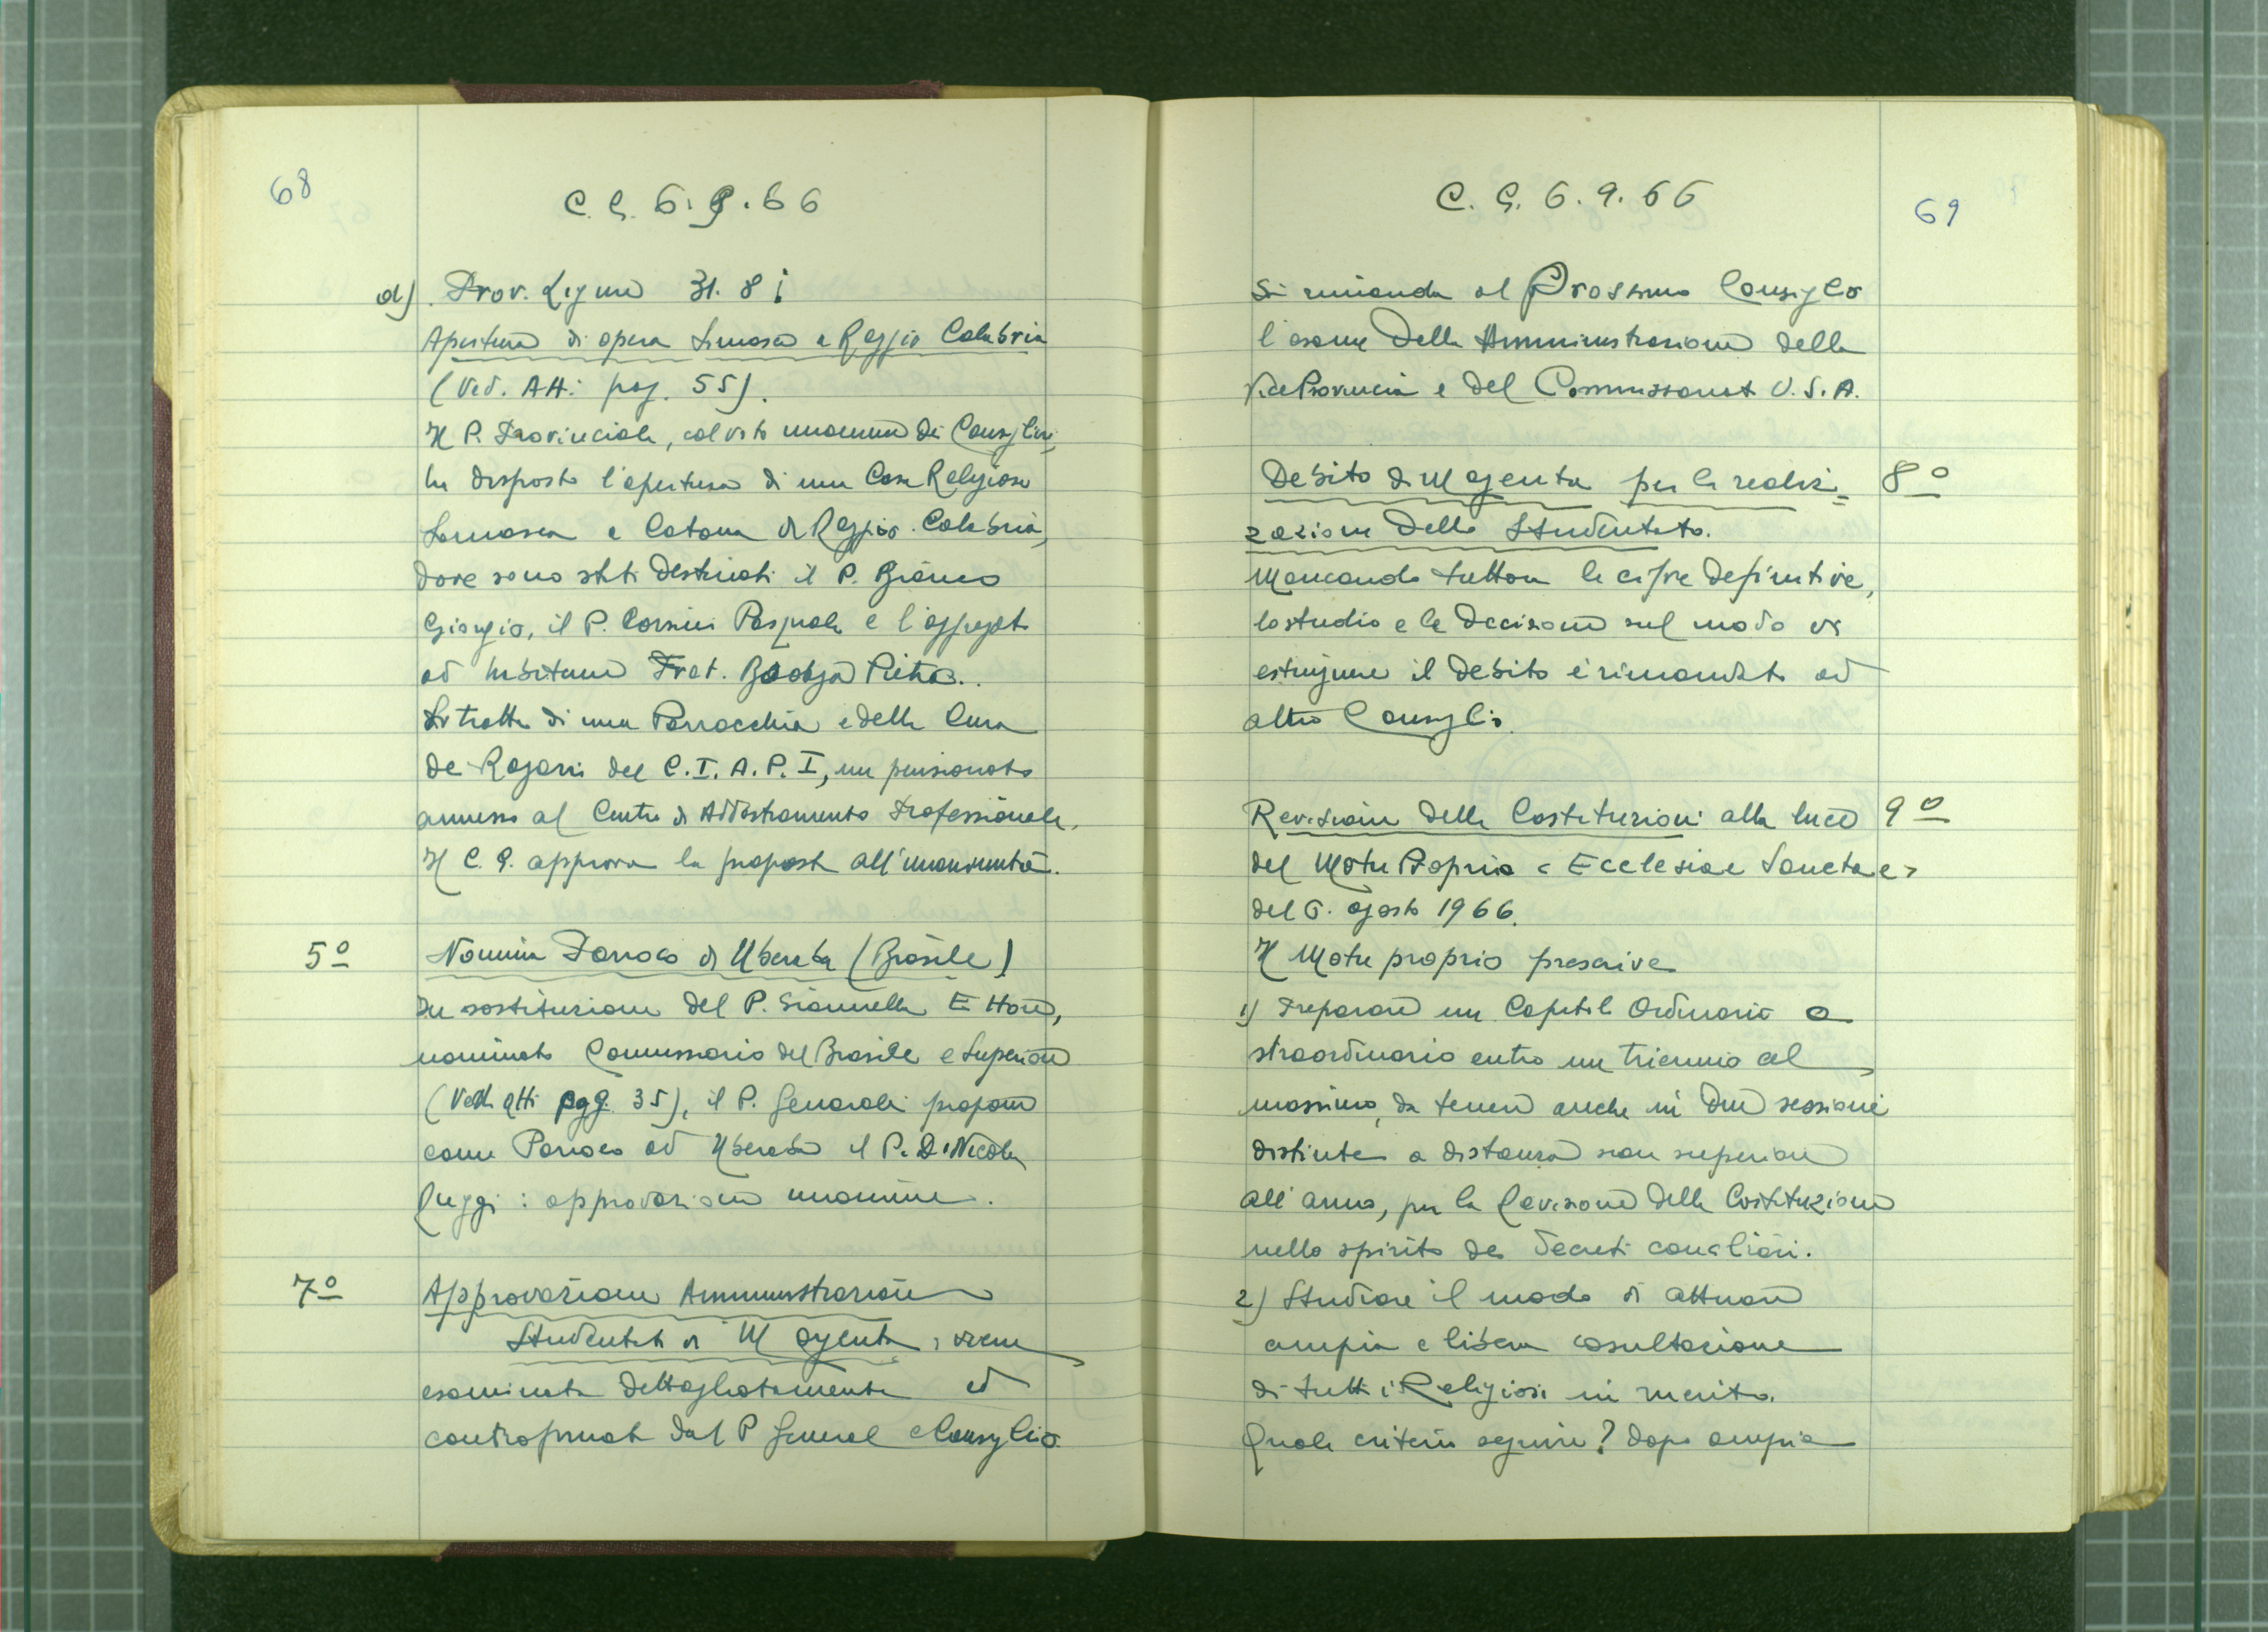 68
C. G. 6. 9. 66
d) Prov. Ligure 31. 8
Apertura di opera Somasca a Reggio Calabria
(Ved. Atti pag. 55).
Il P. Provinciale, col voto unanime dei Consiglieri,
ha disposto l'apertura di una Casa Religiosa
Somasca a Catona di Reggio Calabria,
dove sono stati destinati il P. Bianco
Giorgio, il P. Corsini Pasquale e l'aggregato
ad habitum Frat. Pietro.
Si tratta di una Parrocchia e della Cura
dei Ragazzi del C.I.A.P.I, un pensionato
annesso al Centro di Addestramento Professionale.
Il C. G. approva la proposta all'unanimità.
5º Nomina Parroco di Uberaba (Brasile)
In sostituzione del P. Giannella Ettore,
nominato Commissario del Brasile e Superiore
(Vedi Atti pag. 35), il P. Generale propone
come Parroco ad Uberaba il P. De Nicola
Ruggi : approvazione unanime.
7º Approvazione Amministrazione
Studentato di Magenta : viene
esaminata dettagliatamente ed
controfirmata dal P General e Consiglio
69
C. G. 6. 9. 66
Si rimanda al Prossimo Consiglio
l'esame della Amministrazione della
ViceProvincia e del Commissariato U.S.A.
Debito di Magenta per la realiz= 8º
zazione dello Studentato.
Mancando tuttora le cifre definitive,
lo studio e la decisione sul modo di
estinguere il debito è rimandato ad
altro Consiglio.
Revisione delle Costituzioni alla luce 9º
del Motu Proprio < Ecclesiae Sanctae >
del 6. agosto 1966.
Il Motu proprio prescrive
1) Preparare un Capitolo Ordinario o
straordinario entro un triennio al
massimo, da tenere anche in due sessioni
distinte a distanza non superiore
all'anno, per la Revisione delle Costituzioni
nello spirito dei decreti conciliari.
2) Studiare il modo di attuare
ampia e libera consultazione
di tutti i Religiosi in merito.
Quale criterio seguire? dopo ampia